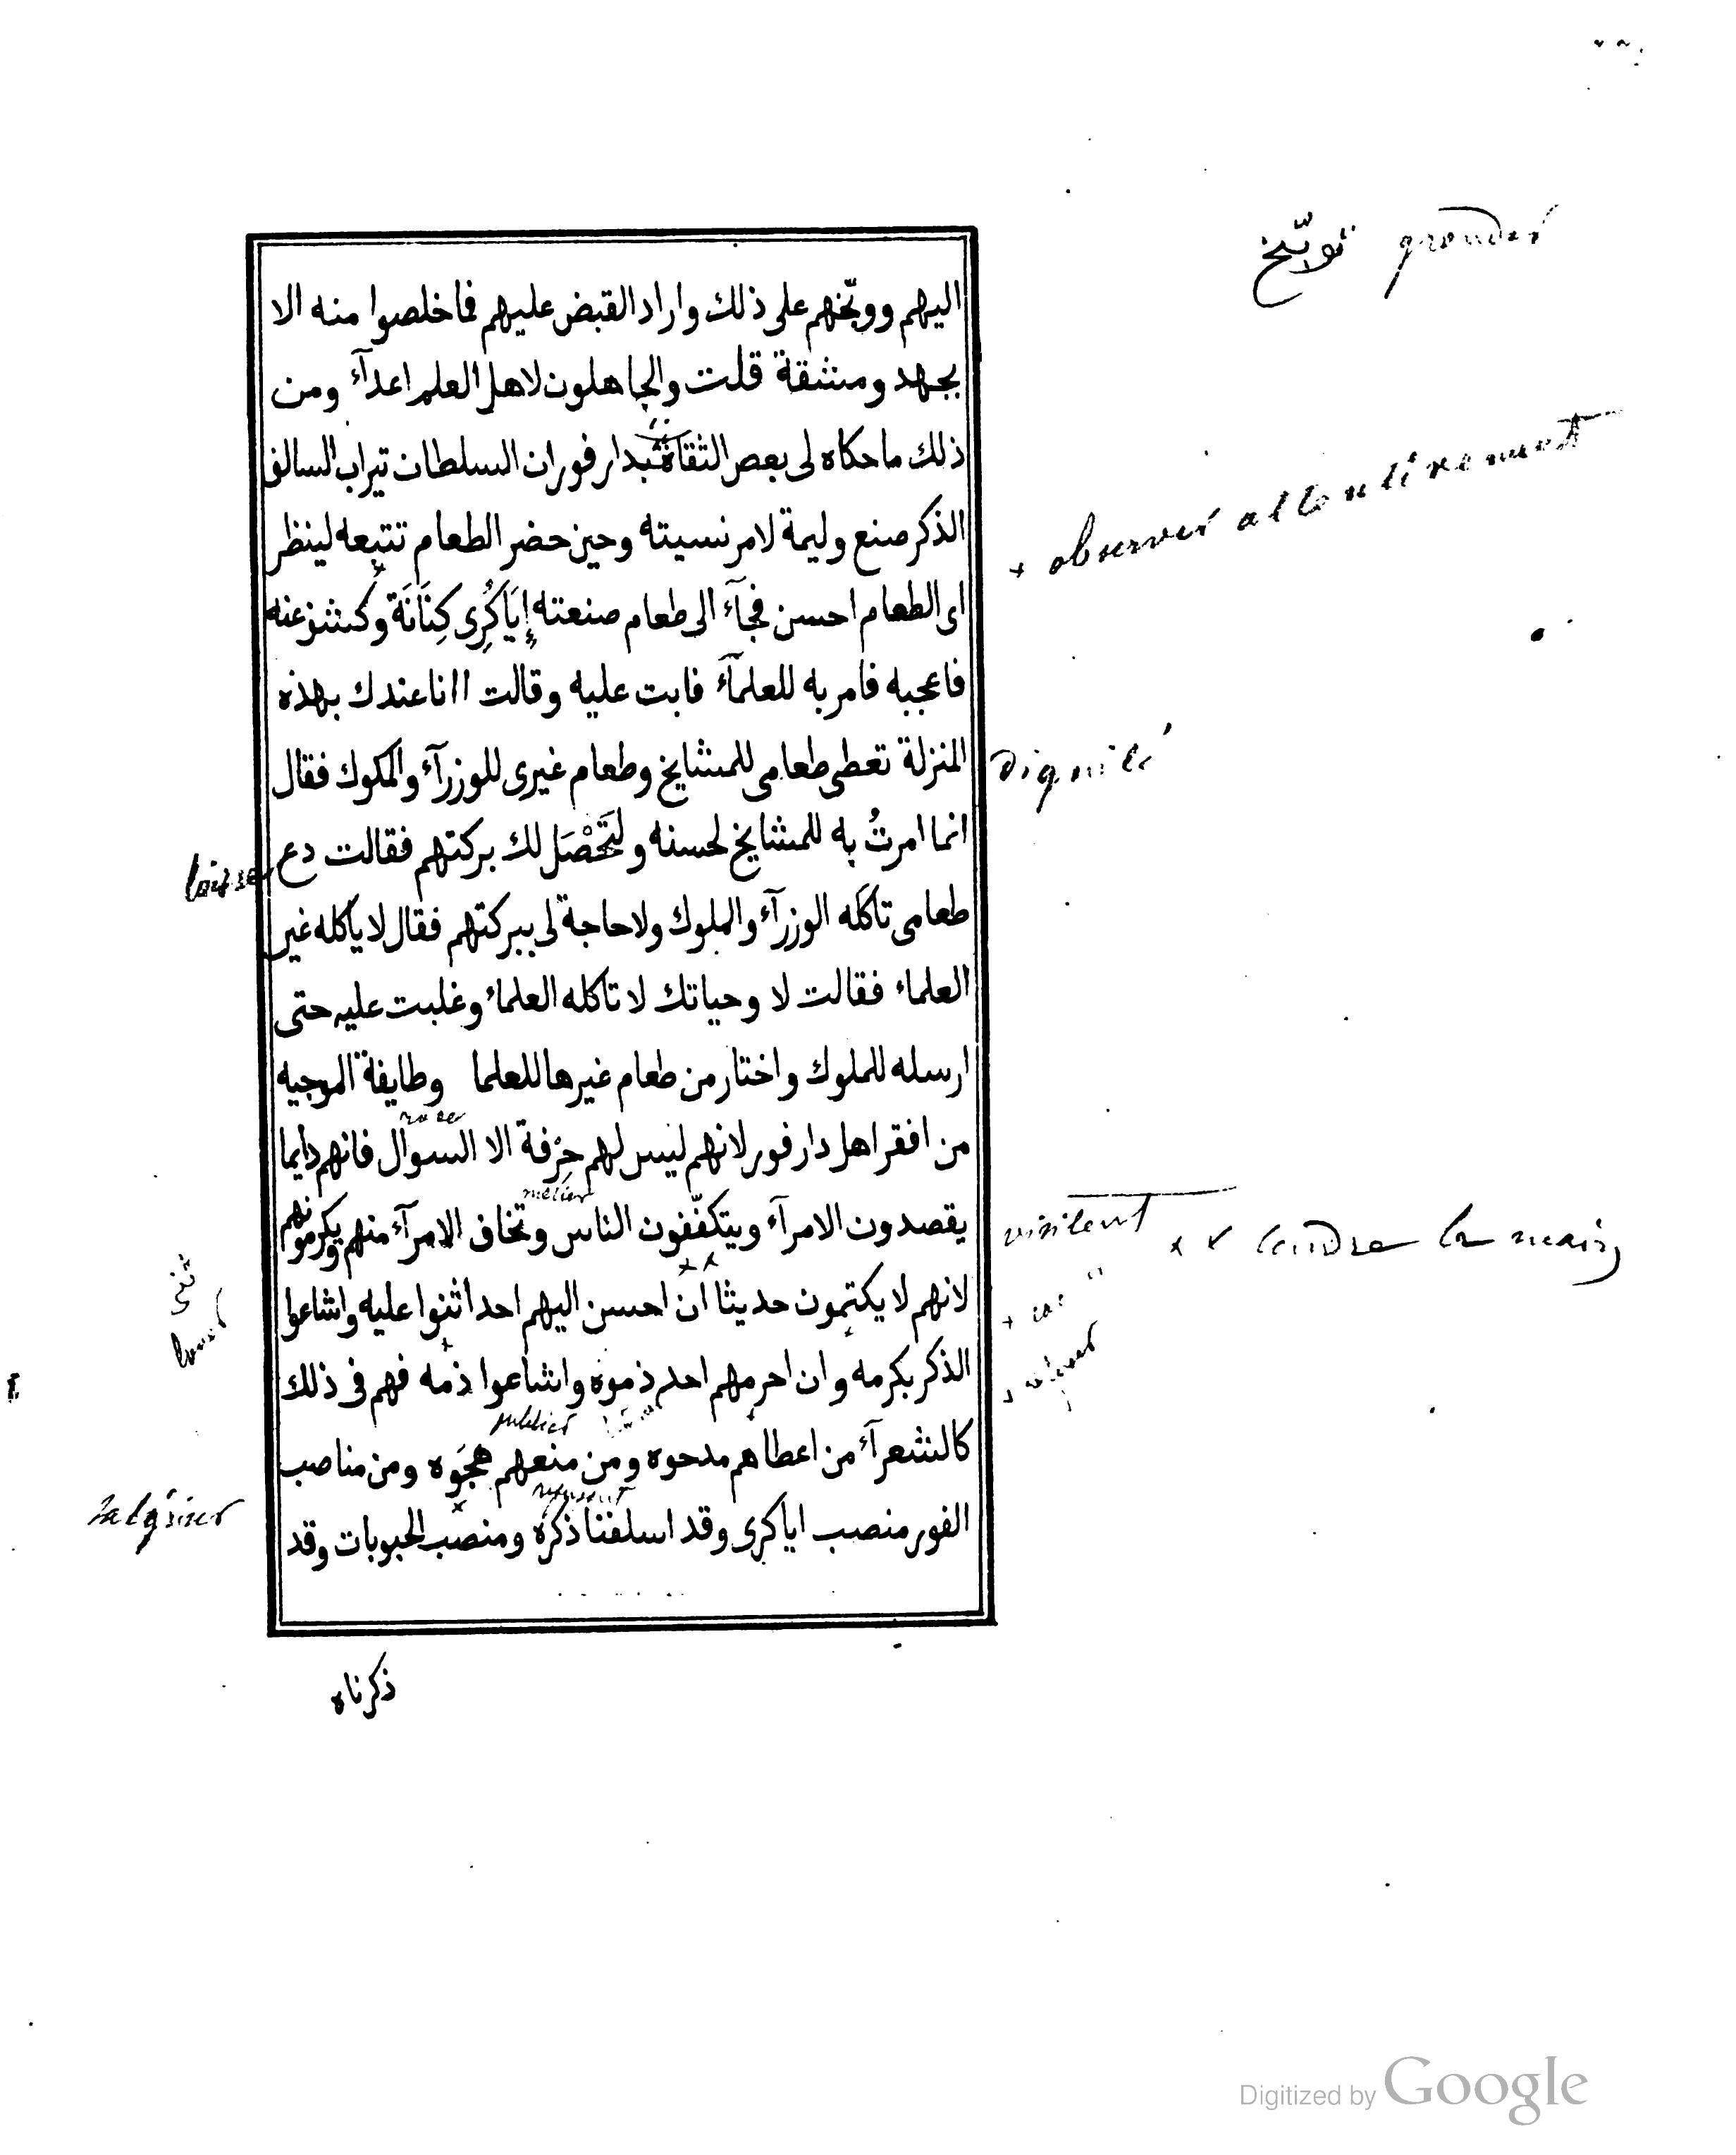 توبّيخ gronder
اليهم ووبّخهم على ذلك واراد القبض عليهم فما خلصوا منه الا
بجهد ومشقة قلت والجاهلون لاهل العلم اعدآء ومن
ذلك ما حكاه لى بعض الثقاة بدارفوران السلطان تيراب السالف
الذكر صنع وليمة لامر نسيته وحين حضر الطعام تتبعه لينظر
+ observer attentivement
اى الطعام احسن فجآء الى طعام صنعته إِيَاكُرِى كِنَانَة وكشف عنه
فاعجبه فامر به للعلمآء فابت عليه وقالت اانا عندك بهذه
المنزلة تعطى طعامى للمشايخ وطعام غيرى للوزرآء والملوك فقال
Dignité
انما امرتُ به للمشايخ لحسنه ولتَحْصَل لك بركتهم فقالت دع
laisser
طعامى تاكله الوزرآء والملوك ولا حاجة لى ببركتهم فقال لا ياكله غير
العلماء فقالت لا وحياتك لا تاكله العلماء وغلبت عليه حتى
ارسله للملوك واختار من طعام غيرها للعلما وطايفة الموجيه
من افقر اهل دارفور لانهم ليس لهم حِرْفة الا السوال فانهم دايما
métier
يقصدون الامرآء ويتكفّفون الناس وتخاف الامرآء منهم ويكرمونهم
visitent ×× tendre la main
لانهم لا يكتمون حديثا ان احسن اليهم احد اثنوا عليه واشاعوا
ثنى louer
الذكر بكرمه وان احرمهم احد ذموه واشاعوا ذمه فهم فى ذلك
publier
كالشعرآء من اعطاهم مدحوه ومن منعهم هجَوه ومن مناصب
الفور منصب اياكرى وقد اسلفنا ذكره ومنصب الحبوبات وقد
ذكرناه
Digitized by Google